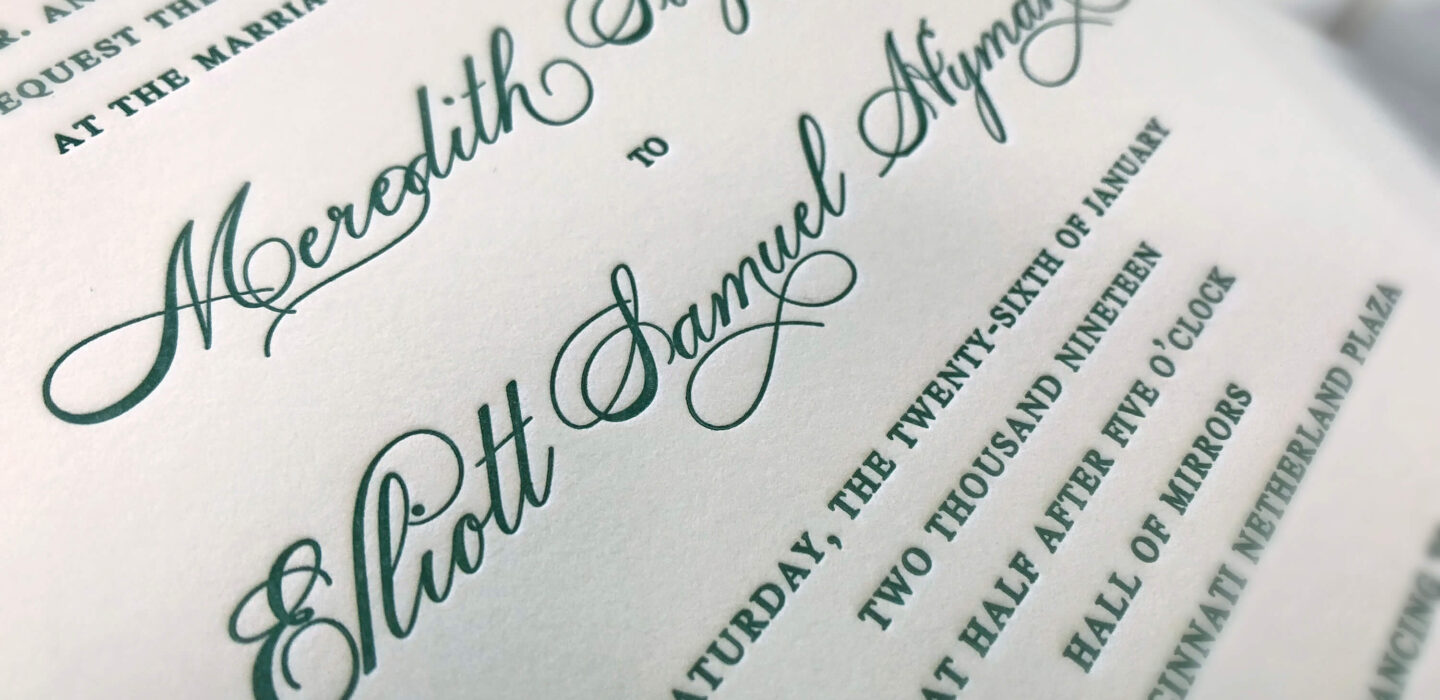 EQUEST THE
AT THE MARRIA
Meredith
TO
Elliott Samuel Nyman
ATURDAY, THE TWENTY-SIXTH OF JANUARY
TWO THOUSAND NINETEEN
AT HALF AFTER FIVE O'CLOCK
HALL OF MIRRORS
CINNATI NETHERLAND PLAZA
ANCING